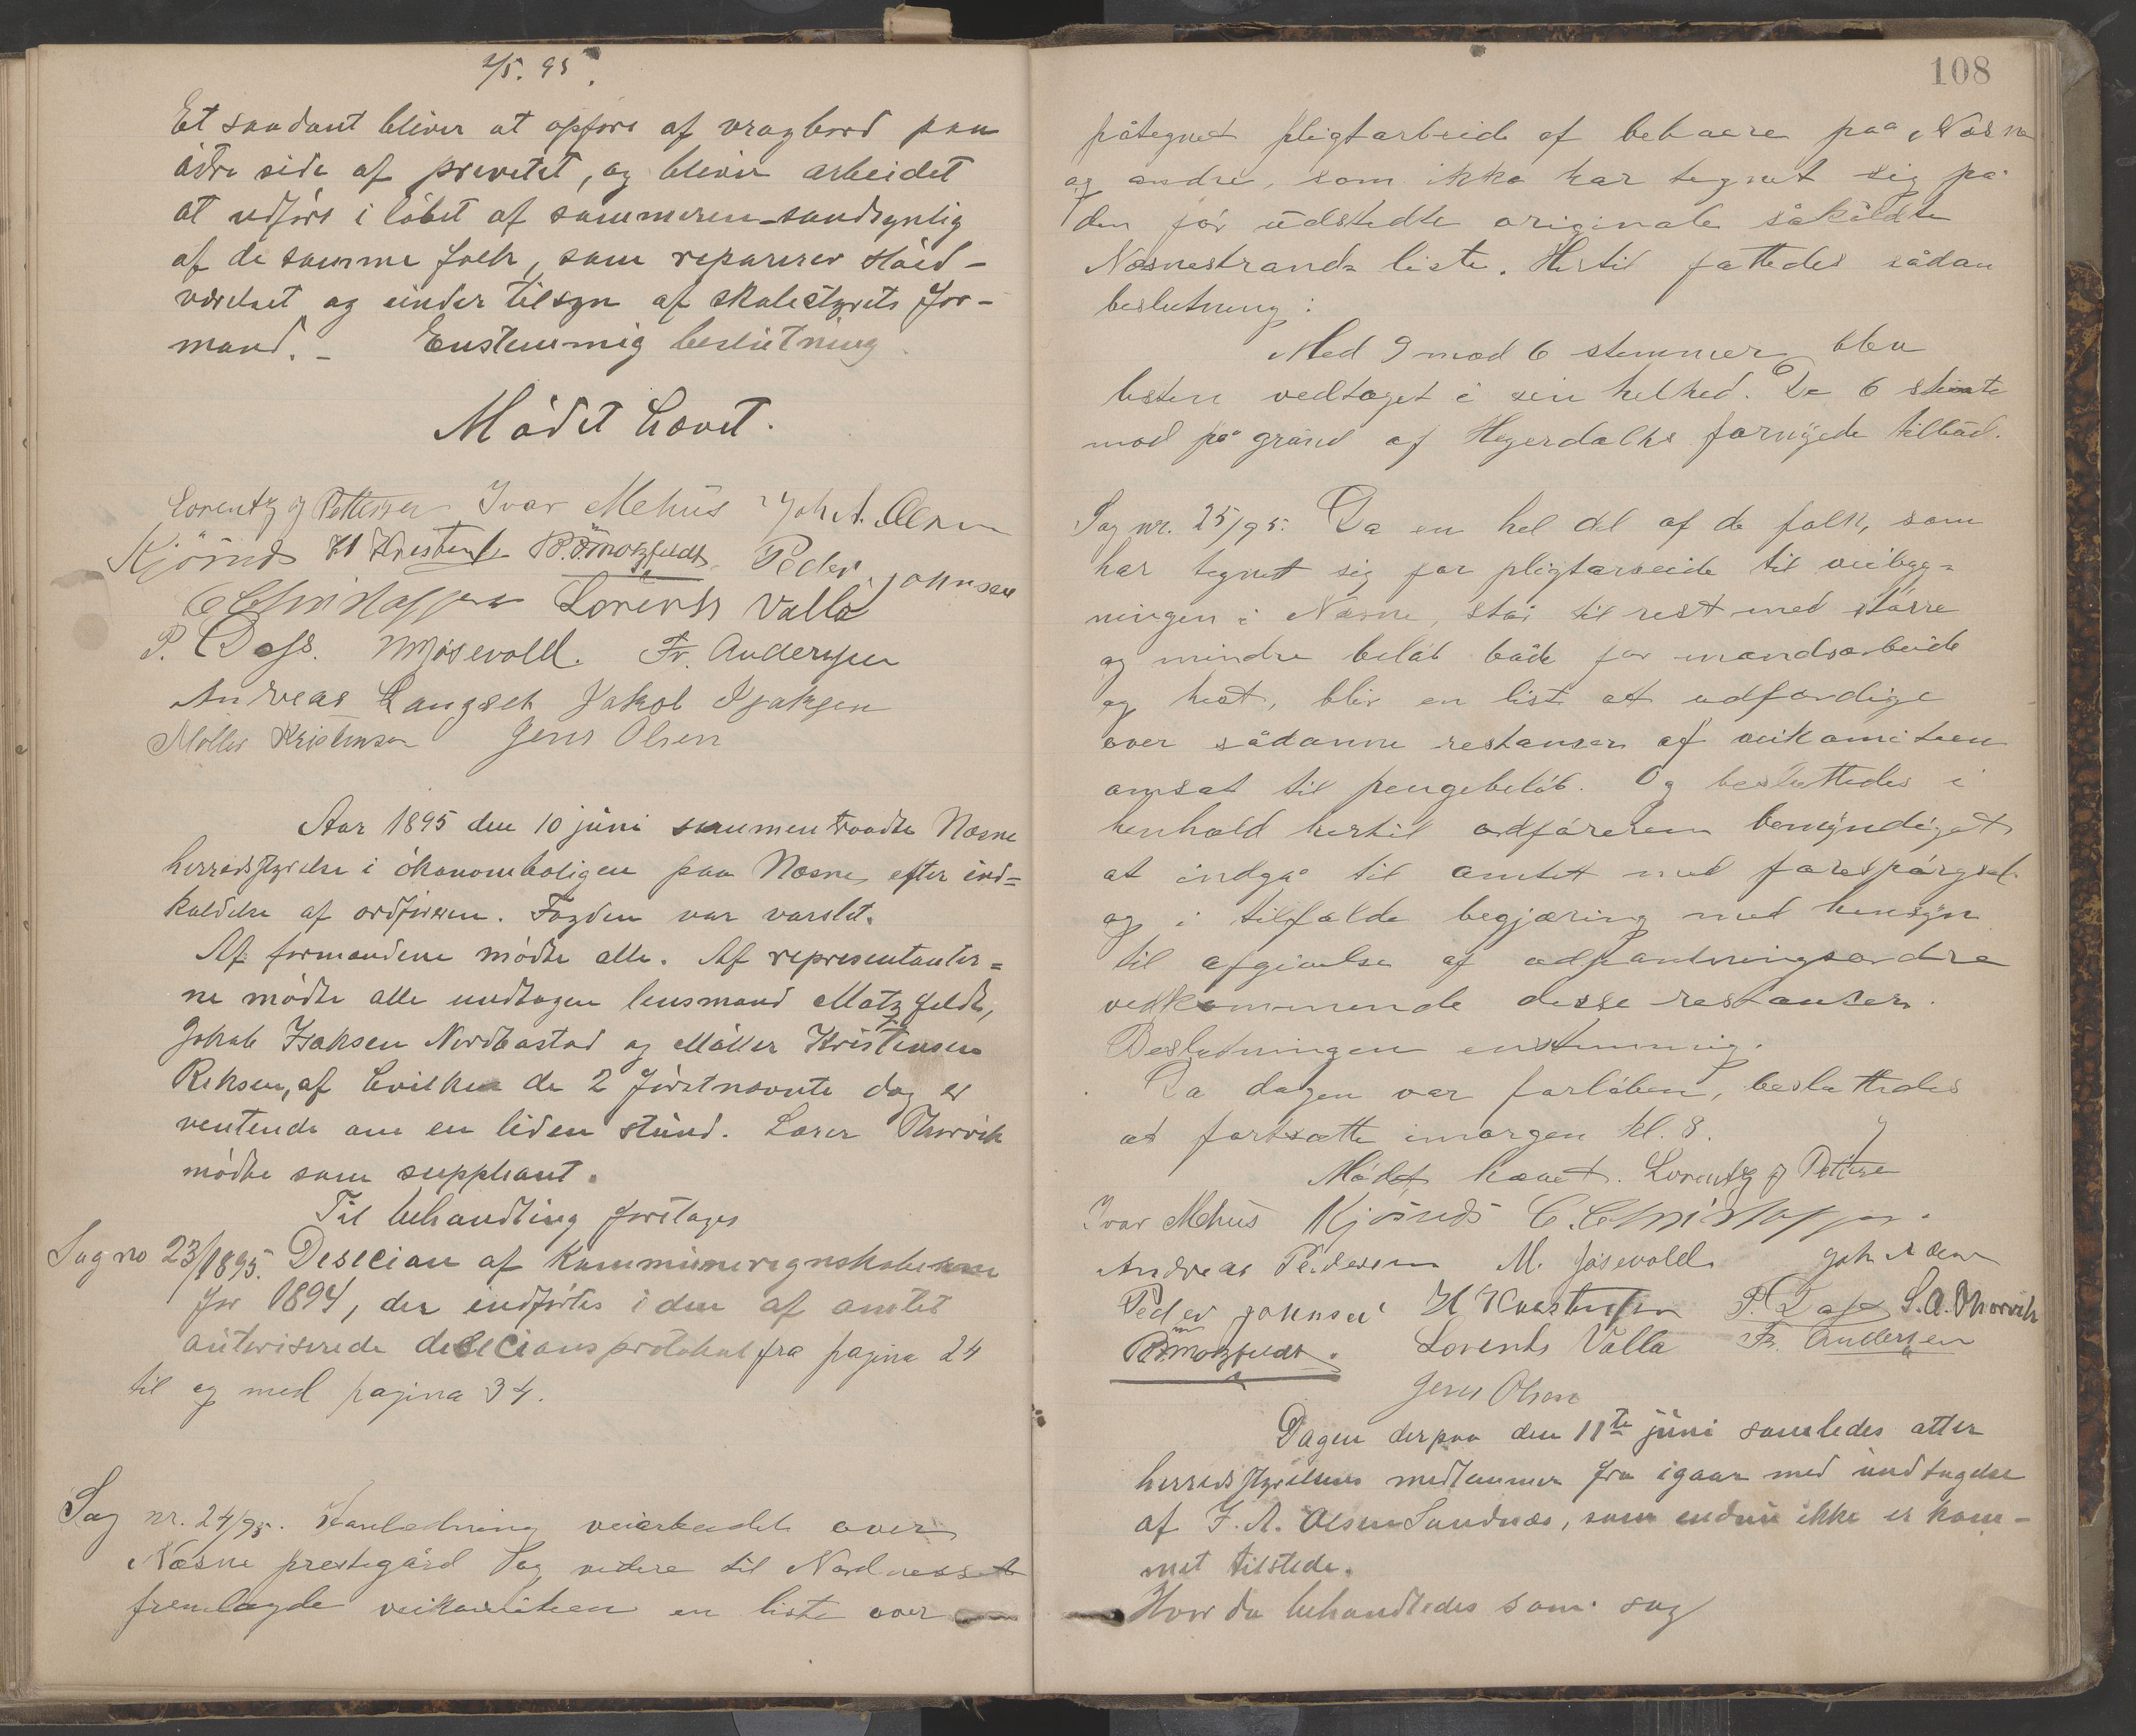 2/5. 95.
Et saadant bliver at opføre af vragbord paa
østre side af prevetet, og bliver arbeidet
at udføre i løbet af sommeren sandsynlig
af de samme folk, som reparerer
værelset og under tilsyn af skolestyrets for-
mand. - Enstemmig beslutning
Mødet hævet.
Lorentz J Pettersen Ivar Mehus Joh A. Olsen
Kjørnås H Kristensen B. Motzfeldt Peder Johnsen
C Christoffersen Lorents Valla
P. Dass. M Jøsevold. Fr. Anderssen
Andreas Langset Jakob Isaksen
Møller Kristensen Jens Olsen
Aar 1895 den 10 juni sammentraadte Næsne
herredsstyrelse i økonomboligen paa Næsne, efter ind=
kaldelse af ordføreren. Fogden var varslet.
Af formændene mødte alle. Af representanter=
ne mødte alle undtagen lensmand Motzfeldt,
Jakob Isaksen Nordbostad og Møller Kristensen
Reksen, af hvilken de 2 førstnævnte dog er
ventende om en liden stund. Lorer Thorvik
mødte som suppleant.
Til behandling foretages
Sag no 23/1895. Desecion af kommuneregnskaberne
for 1894, der indførtes i den af amtet
auteriserede desecionsprotokol fra pagina 24
til og med pagina 34.
Sag nr. 24/95. I anledning veiarbeidet over
Næsne prestegård og videre til Nordnesset
fremlagde veikomiteen en liste over
108
påtegnet pligtarbeide af beboere paa Næsne
og andre, som ikke har tegnet sig på
den før udstedte originale såkaldte
Næsnestrands liste. Hertil fattedes sådan
beslutning:
Med 9 mod 6 stemmer blev
listen vedtaget i sin helhed. De 6 stemte
mod på grund af Hegerdahls fornyede tilbud.
Sag nr. 25/95. Da en hel del af de folk, som
har tegnet sig for pligtarbeide til veibyg=
ningen i Næsne, står til rest med større
og mindre beløb både for mandsarbeide
og hest, blir en liste at udfærdige
over sådanne restanser af veikomiteen
omsat til pengebeløb. Og besluttedes i
henhold hertil ordføreren bemyndiget
at indgå til amtet med forespørgsel
og i tilfælde begjæring med hensyn
til afgivelse af udpantningsordre
vedkommende disse restanser.
Beslutningen enstemmig.
Da dagen var forløben, besluttedes
at fortsætte imorgen kl. 8.
Mødet hævet. Lorentz J Petterse
Ivar Mehus Kjørnås C. Christoffersen.
Andreas Pedersen M. Jøsevold Joh A Olsen
Peder Johnsen H Kristensen P. Dass L. A. Thorvik
B. Motzfeldt. Lorents Valla Fr. Anderssen
Jens Olsen
Dagen derpaa den 11te juni samledes atter
herredsstyrelsens medlemmer fra igaar med undtagelse
af J. A. Olsen Sundnæs, som endnu ikke er kom-
met tilstede.
Hvor da behandledes som sag